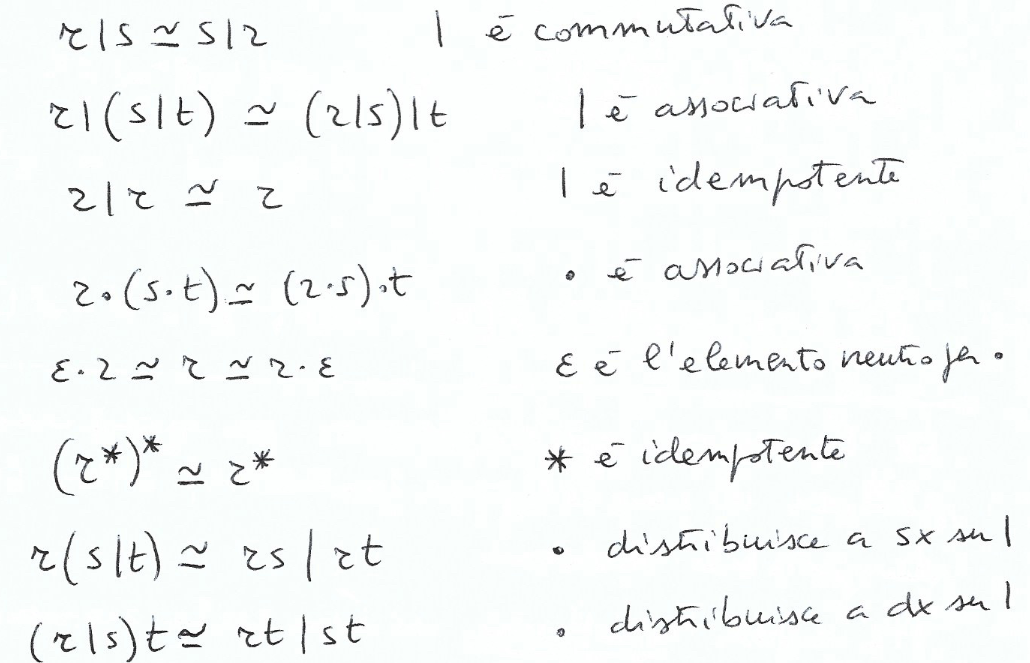 r|s ≃ s|r | é commutativa
r|(s|t) ≃ (r|s)|t | é associativa
r|r ≃ r | é idempotente
r·(s·t) ≃ (r·s)·t · é associativa
ε·r ≃ r ≃ r·ε ε é l'elemento neutro per ·
(r*)* ≃ r* * é idempotente
r(s|t) ≃ rs | rt · distribuisce a sx su |
(r|s)t ≃ rt | st · distribuisce a dx su |